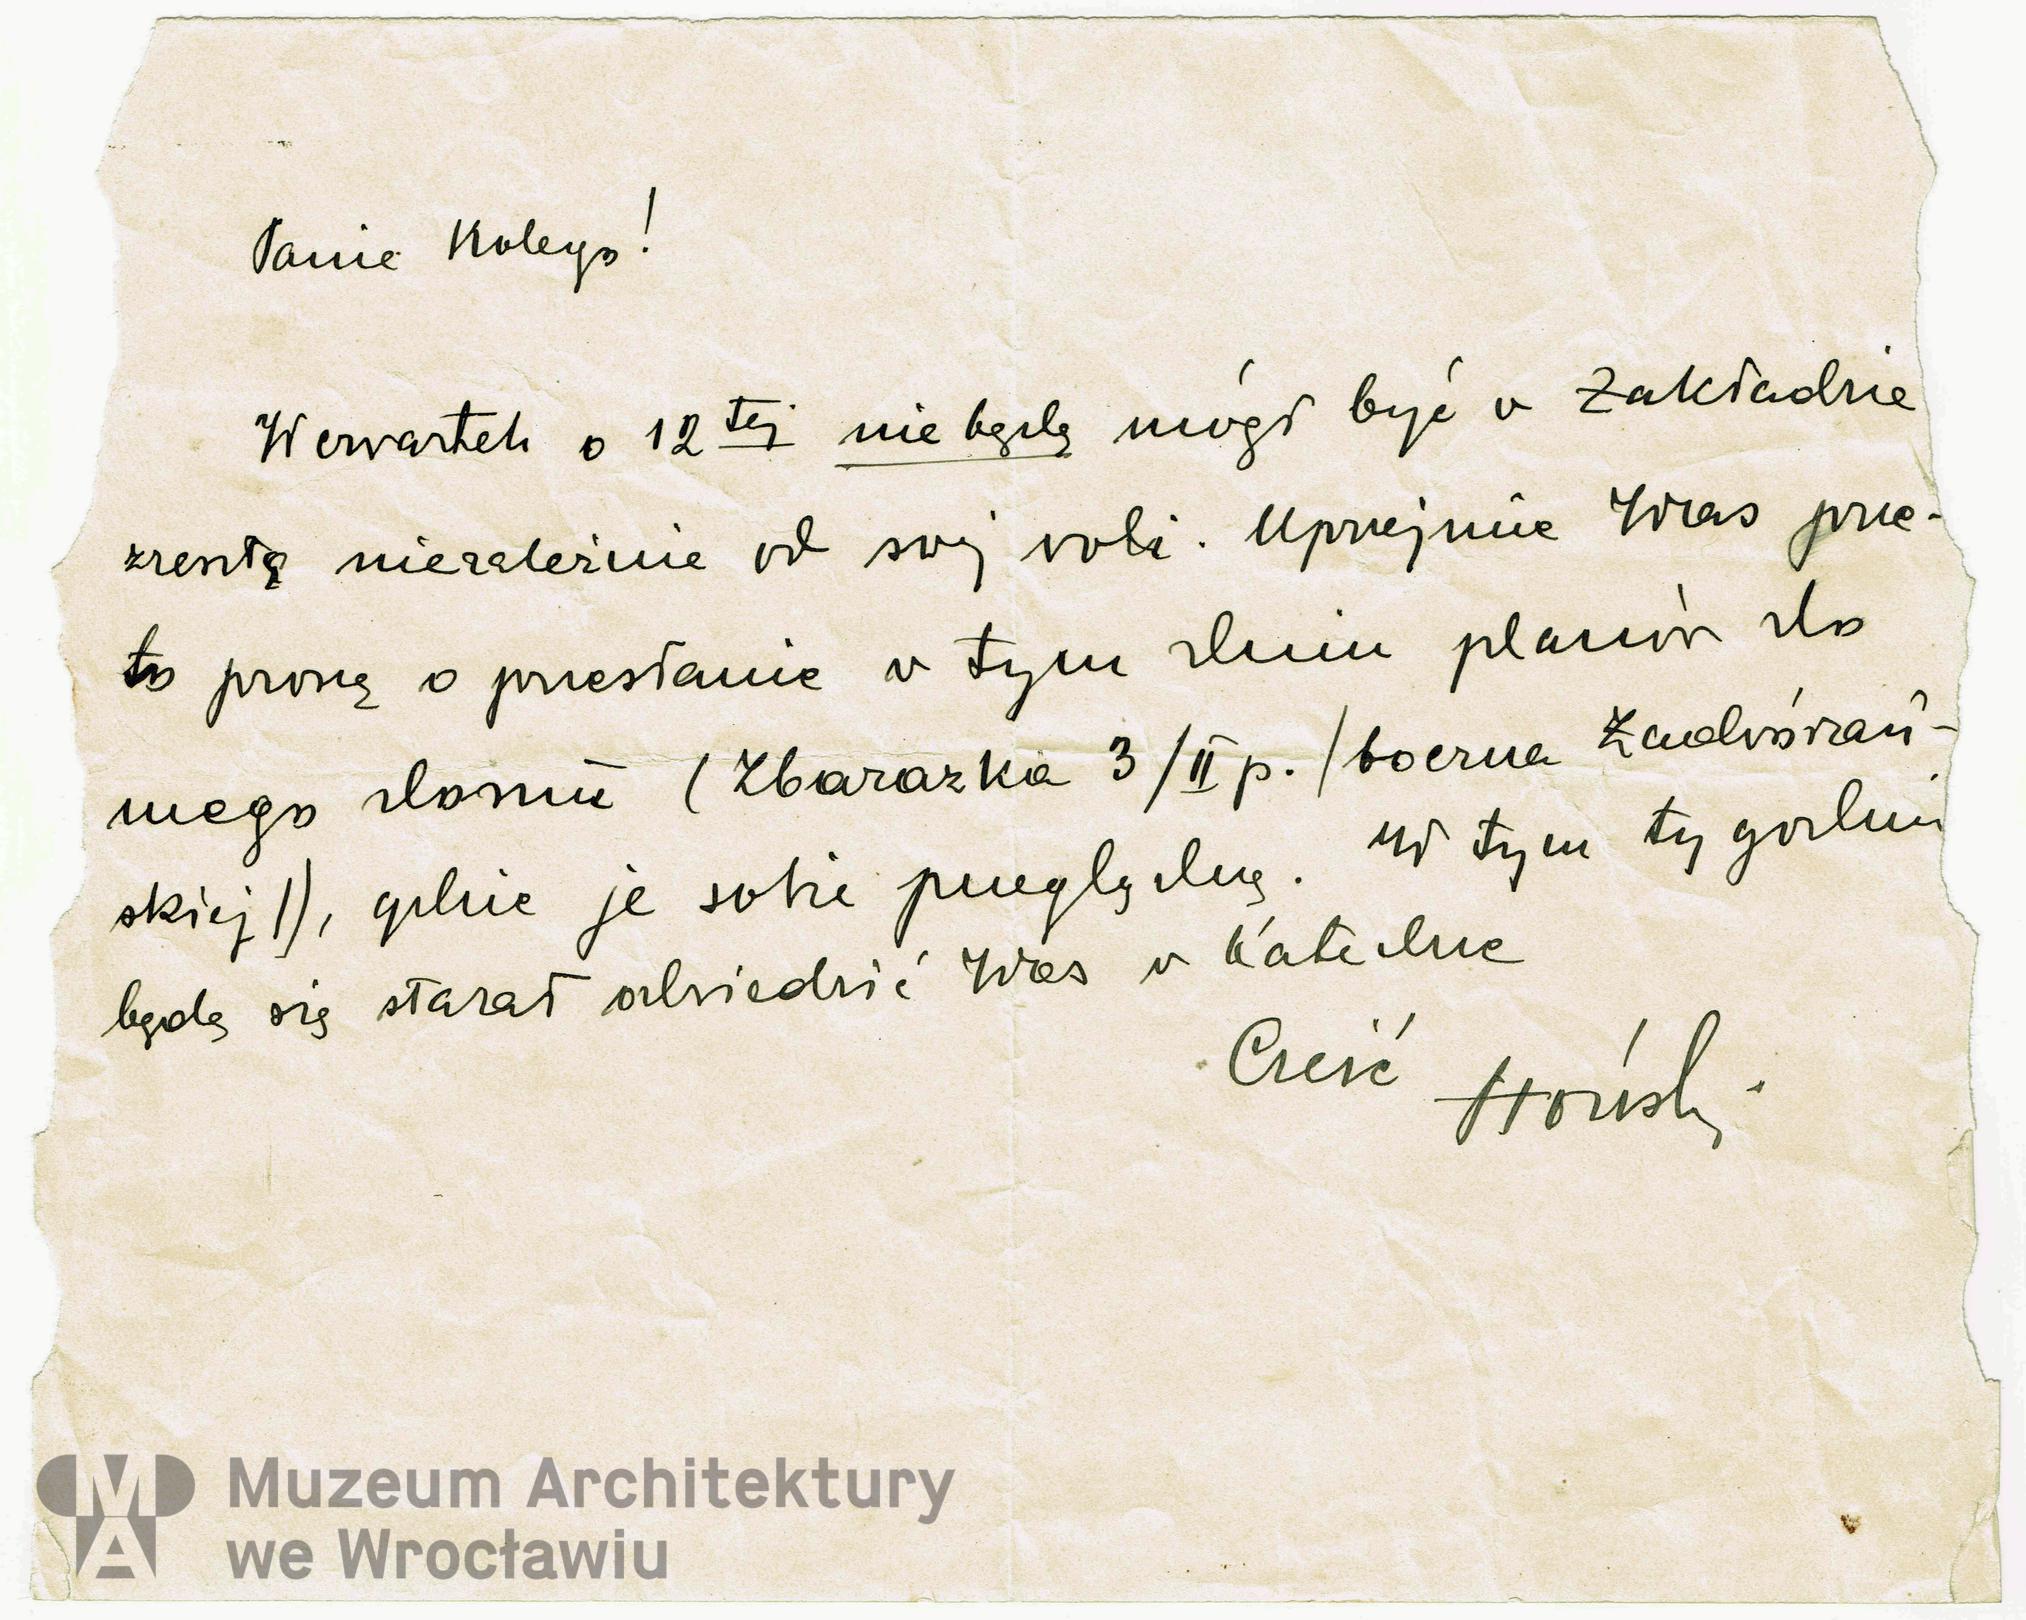 Panie Kolego!
W czwartek o 12tej nie będę mógł być w Zakładzie
zresztą niezależnie od swej woli. Uprzejmie Was prze-
to proszę o przesłanie w tym dniu planów do
mego domu (Zbarazka 3/II p. /boczna Zadwórzań-
skiej/), gdzie je sobie przeglądnę. W tym tygodniu
będę się starał odwiedzić Was w Katedrze
Cześć
Muzeum Architektury
we Wrocławiu